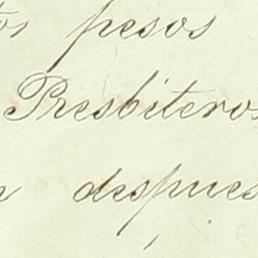 pesos
Presbiteros
despues